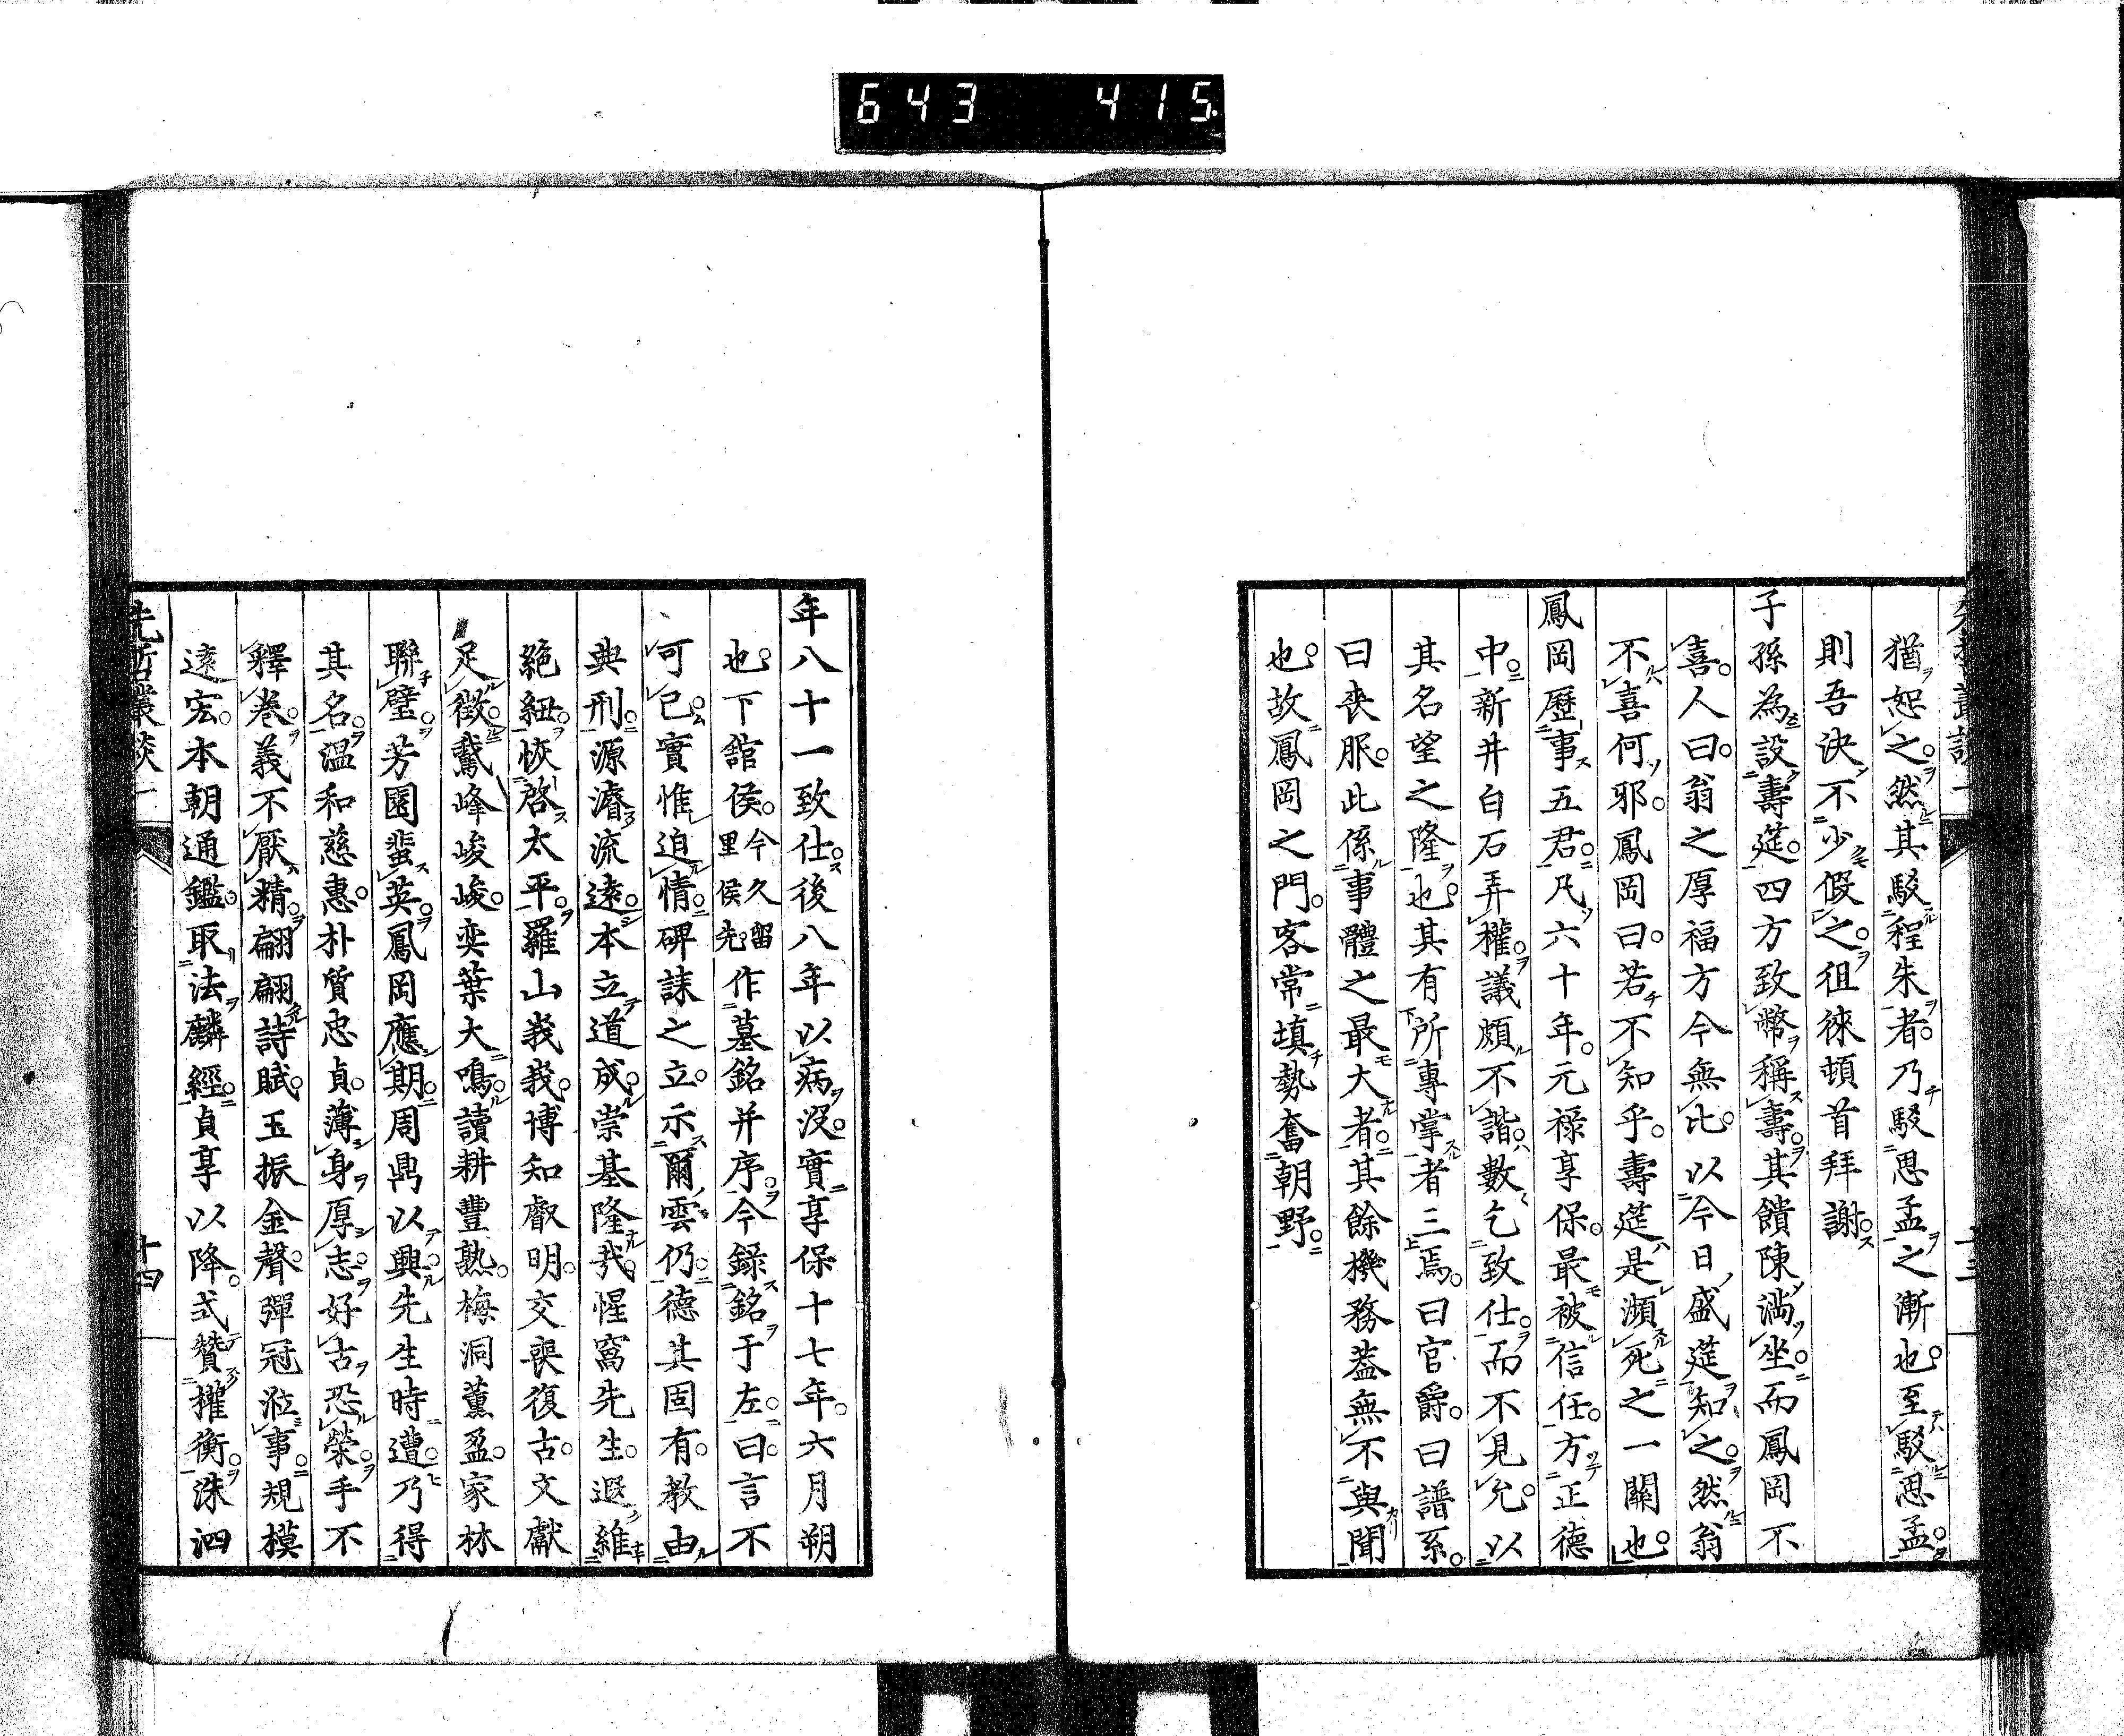 643 415
猶恕之。然其駁程朱者。乃駁思孟之漸也。至駁思孟。
則吾決不少假之。徂徠頓首拜謝。
子孫為設壽筵。四方致幣稱壽。其饋陳滿坐。而鳳岡不
喜。人曰。翁之厚福方今無比。以今日盛筵知之。然翁
不喜何邪。鳳岡曰。若不知乎。壽筵是瀕死之一關也。
鳳岡歷事五君。凡六十年。元祿享保。最被信任。方正德
中。新井白石弄權。議頗不諧。數乞致仕。而不見允。以
其名望之隆也。其有所專掌者三焉。曰官爵。曰譜系。
曰喪服。此係事體之最大者。其餘機務蓋無不與聞
也。故鳳岡之門。客常填勢奮朝野。
年八十一致仕。後八年以病沒。實享保十七年。六月朔
也。下舘侯。今久留里侯先。作墓銘并序。今錄銘于左。曰。言不
可已。實惟迫情。碑誄之立。示爾雲仍。德其固有。教由
典刑。源濬流遠。本立道成。崇基隆哉。惺窩先生。遐維
絶紐。恢啓太平。羅山峩峩。博知叡明。交喪復古。文獻
足徵。鵞峰峻峻。奕葉大鳴。讀耕豐熟。梅洞薰盈。家林
聯璧。芳園蜚英。鳳岡應期。周鼎以興。先生時遭。乃得
其名。温和慈惠。朴質忠貞。薄身厚志。好古恐榮。手不
釋卷。義不厭精。翩翩詩賦。玉振金聲。彈冠涖事。規模
遠宏。本朝通鑑。取法麟經。貞享以降。式贊權衡。洙泗
先哲叢談 十四